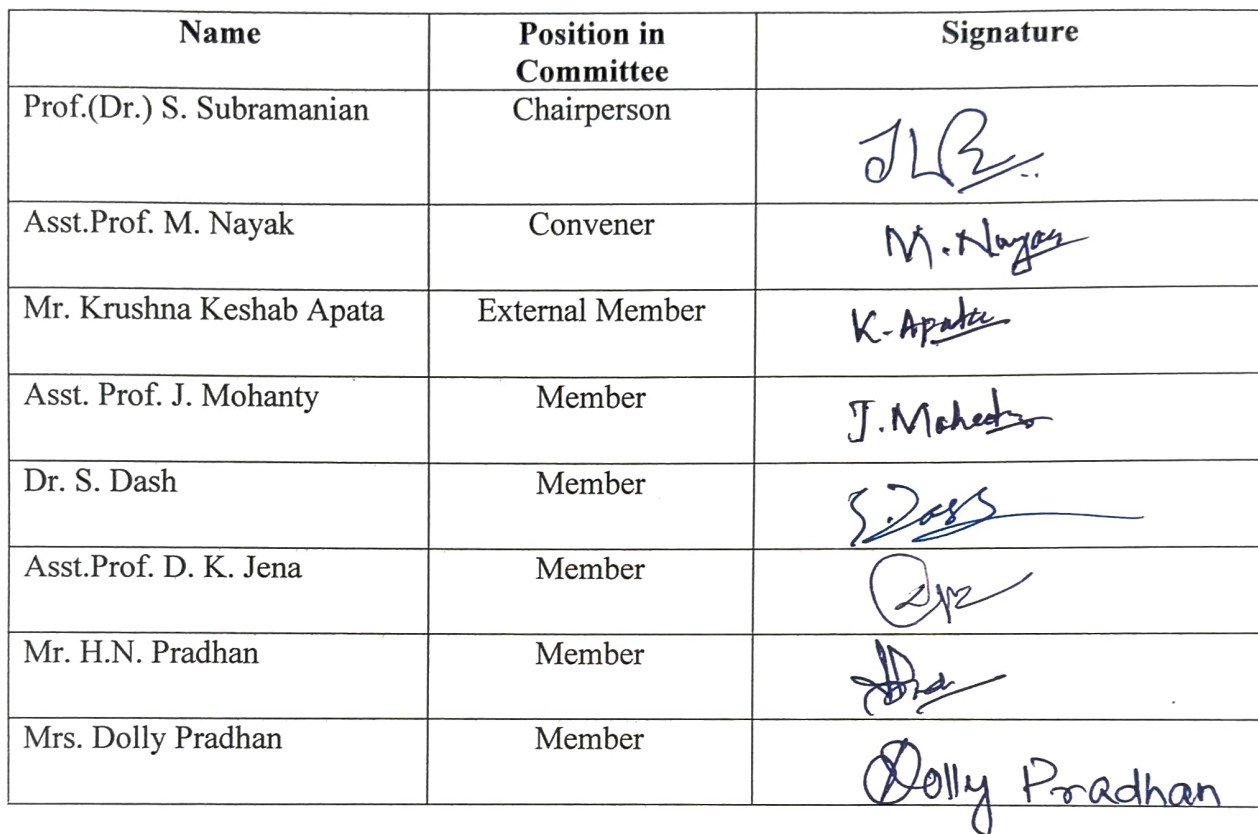 Name Position in Signature
Committee
Prof.(Dr.) S. Subramanian Chairperson
Asst.Prof. M. Nayak Convener M. Nayak
Mr. Krushna Keshab Apata External Member K. Apata
Asst. Prof. J. Mohanty Member J.
Dr. S. Dash Member S. Dass
Asst.Prof. D. K. Jena Member
Mr. H.N. Pradhan Member
Mrs. Dolly Pradhan Member Dolly Pradhan